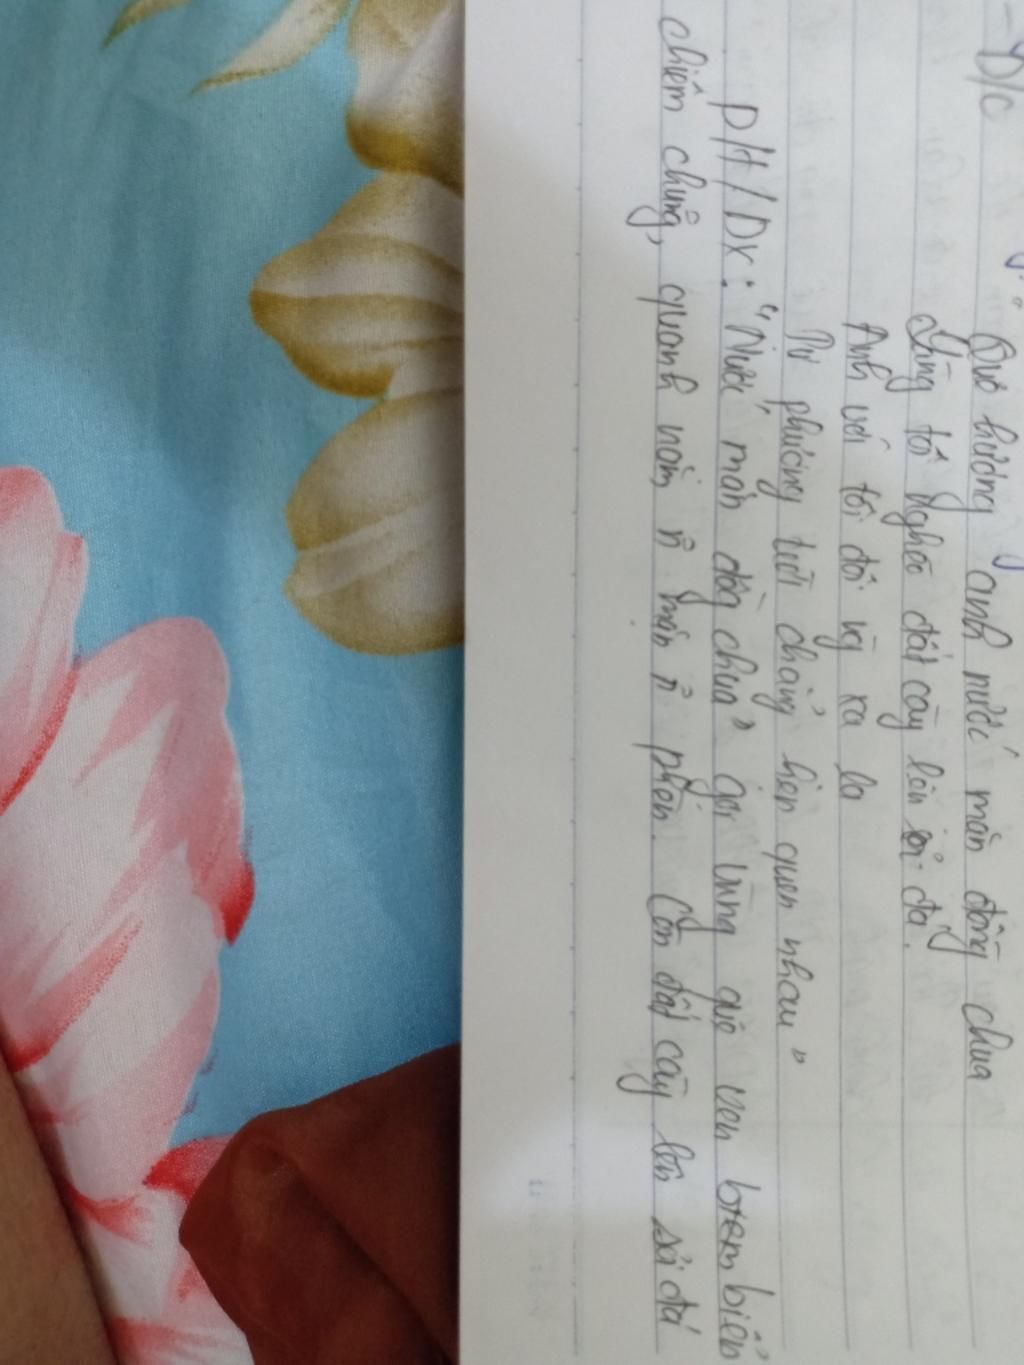 - D/c
Quê hương anh nước mặn đồng chua
Làng tôi nghèo đất cày lên sỏi đá.
Anh với tôi đôi ng xa lạ
Từ phương trời chẳng hẹn quen nhau"
PH/DX: "Nước mặn đồng chua" gợi vùng quê ven biển
chiêm chũng, quanh năm n mặn n phèn. Còn đất cày lên sỏi đá